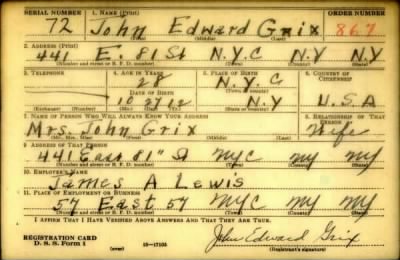 SERIAL NUMBER 1. NAME (Print) ORDER NUMBER
72 John Edward Grix 867
(First) (Middle) (Last)
2. ADDRESS (Print)
441 E. 81 St N.Y.C N.Y N.Y
(Number and street or R. F. D. number) (Town) (County) (State)
3. TELEPHONE 4. AGE IN YEARS 5. PLACE OF BIRTH 6. COUNTRY OF CITIZENSHIP
28 N.Y.C
DATE OF BIRTH (Town or county)
10 27 12 N.Y U.S.A
(Exchange) (Number) (Mo.) (Day) (Yr.) (State or country)
7. NAME OF PERSON WHO WILL ALWAYS KNOW YOUR ADDRESS 8. RELATIONSHIP OF THAT PERSON
Mrs. John Grix Wife
(Mr., Mrs., Miss) (First) (Middle) (Last)
9. ADDRESS OF THAT PERSON
441 East 81" St NYC NY NY
(Number and street or R. F. D. number) (Town) (County) (State)
10. EMPLOYER'S NAME
James A Lewis
11. PLACE OF EMPLOYMENT OR BUSINESS
57 East 57 NYC NY NY
(Number and street or R. F. D. number) (Town) (County) (State)
I AFFIRM THAT I HAVE VERIFIED ABOVE ANSWERS AND THAT THEY ARE TRUE.
REGISTRATION CARD
D. S. S. Form 1 (over) 16-17105 John Edward Grix
(Registrant's signature)